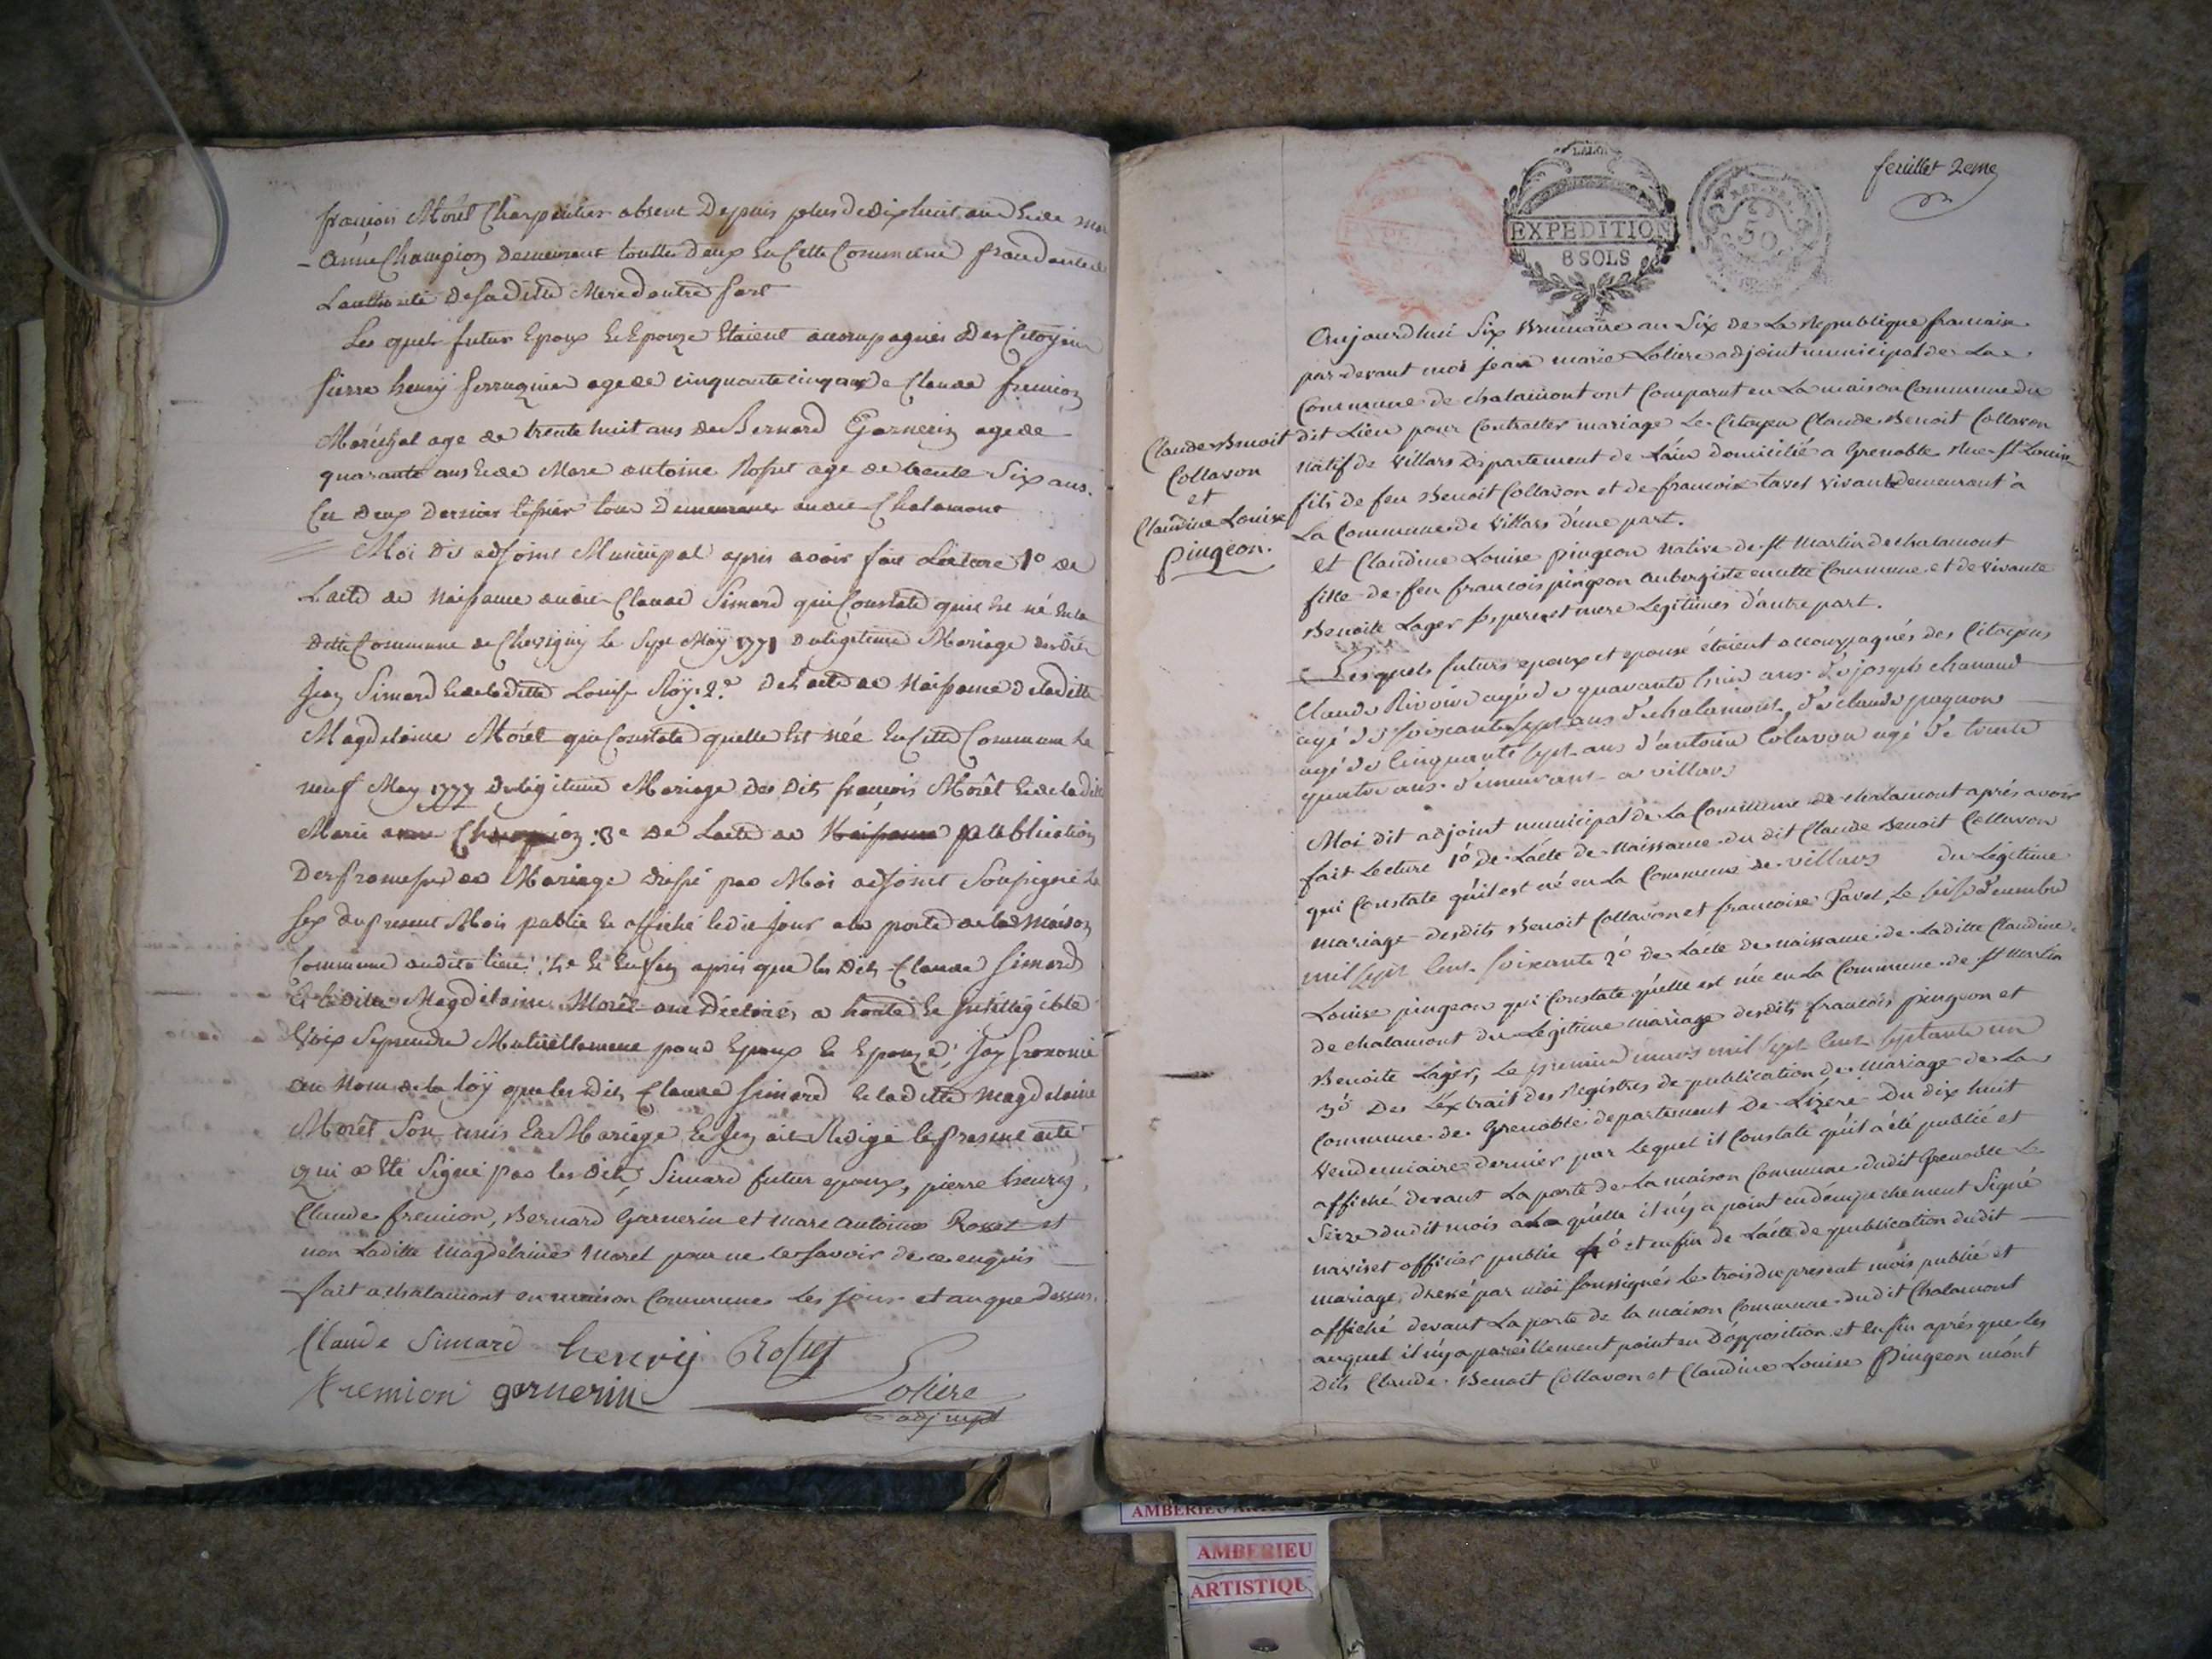 françois Mórel Charpentier absent Depuis plus de dixhuit ans Et de
Anne Champion Demeurant toutte deux En Cette Commune
Lauthorité De sa ditte Mere dautre part
Les quels futur Epoux Et Epouze Etaient accompagnés Des Citoyens
pierre henrÿ age de cinquante cinq ans de Claude fremion
Maréchal age de trente huit ans de Bernard Garnerin age de
quarante ans Et de Marc antoine Rosset age de trente Six ans.
Ces deux Derniers tous Demeurants audit Chalamont
Moi dit adjoint Municipal apres avoir fait Lecture 1° de
Lacte de Naissance dudit Claude Simard qui Constate quil Est né En la
ditte Commune de Chevigny le Sept Maÿ 1771 du legitime Mariage desdits
Jean Simard Et de laditte Louise Roÿ. 2.° De Lacte de Naissance de laditte
Magdelaine Mórel qui Constate quelle Est née En Cette Commune le
neuf May 1777 du legitime Mariage des Dits françois Morêt Et de la ditte
Marie anne Champion : 3e De Lacte de Naissance publication
Des promesses de Mariage dressé par Moi adjoint Soussigné le
Six du present Mois publié Et affiché ledit Jour a la porte de la Maison
Commune dudit lieu : 4e Et Enfin apres que les dits Claude Simard
Et laditte Magdelaine Morêl ont Déclarés a haute Et Intelligible
Voix Seprendre Mutuellement pour Epoux Et Epouze, Jay prononcé
au Nom de la loÿ que les dits Claude Simard Et laditte Magdelaine
Morêt Son unis En Mariage Et Jen ait Redigé le present acte
qui a Eté Signé par les dits Simard futur epoux, pierre henry,
Claude fremion, Bernard Garnerin et Marc Antoine Rosset et
non Laditte Magdelaine Morel pour ne le savoir de ce enquis
fait a chalamont en maison Commune Les jour et an que dessus.
Claude Simard henrÿ Rosset
fremion garnerin Loliere
adj mpl
feuillet 2eme
LALOI
EXPEDITION
8 SOLS
50
Claude Benoit
Collavon
et
Claudine Louise
pingeon.
Aujourdhui Six Brumaire an Six de La Republique francaise
par devant moi jean marie Loliere adjoint municipal de La
Commune de chalamont ont Comparut en La maison Commune du
dit Lieu pour Contracter mariage Le Citoyen Claude Benoit Collavon
natif de Villars Departement de Láin Domicilié a Grenoble Rue St Louis
fils de feu Benoit Collavon et de francoise tavel vivante demeurant à
La Commune de Villars d'une part.
et Claudine Louise pingeon native de St Martin de chalamont
fille de feu francois pingeon aubergiste en cette Commune et de vivante
Benoite Lager ses pere et mere Legitimes d'autre part.
Les quels futurs epoux et epouse étoient accompagnés des Citoyens
Claude Rivoire agé de quarante huit ans De joseph chanaud
agé de soixante sept ans de chalamont, De claude pagnon
agé de Cinquante sept ans d'antoine Colavon agé de trente
quatre ans demeurant a villars
Moi dit adjoint municipal de La Commune de chalamont aprés avoir
fait Lecture 1° de Lácte de Naissance du dit Claude Benoit Collavon
qui Constate qu'il est né en La Commune de villars du Legitime
mariage desdits Benoit Collavon et francoise Tavel, Le seize décembre
mil sept Cent soixante 2° de Lacte de naissance de Laditte Claudine
Louise pingeon qui Constate qu'elle est née en La Commune de St Martin
de chalamont du Legitime mariage desdits francois pingeon et
Benoite Lager, Le premier mars mil sept Cent septante un
3° Des Léxtrait des Registres de publication de Mariage de La
Commune de Grenoble departement De Lizere Du dix huit
Vendemiaire dernier par Lequel il Constate qu'il a été publié et
affiché devant La porte de La maison Commune dudit Grenoble Le
Seize dudit mois a La quelle il n'y a point eu dempechement Signé
navizet officier public 4° et enfin de Lácte de publication dudit
mariage, dressé par moi soussignés Le trois du present mois publié et
affiché devant La porte de la maison Commune dudit Chalamont
auquel il n'y a pareillement point eu Dópposition et enfin aprés que Les
Dits Claude Benoit Collavon et Claudine Louise Pingeon m'ónt
AMBERIEU
AMBERIEU
ARTISTIQU